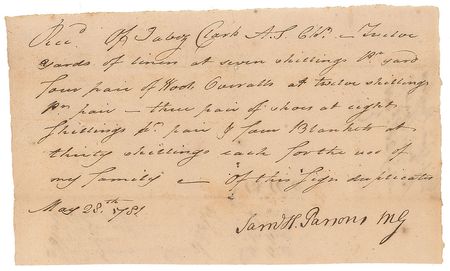 Rec.d Of Jabez Clark A.S. C.&c. — Twelve
yards of linen at seven shillings Pr. yard
four pair of Wool Overalls at twelve shillings
Pr. pair — three pair of shoes at eight
Shillings Pr. pair & four Blankets at
thirty shillings each for the use of
my family — Of this Sign duplicates
May 28.th 1781
Sam.l H. Parsons MG